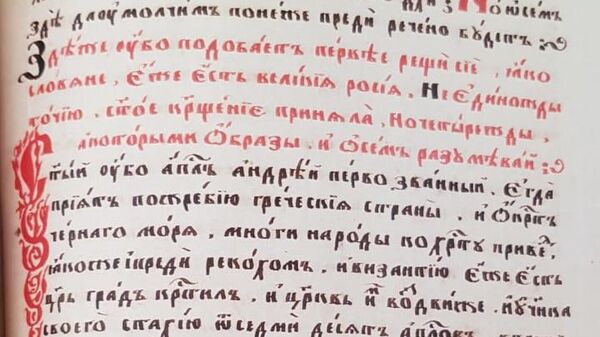 ѿсемъ
здѣ даѹмолчимъ понеже преди речено будетъ
Здѣже ѹбо подобаетъ первѣе рещи сїе, ꙗко
словяне, еже есть великїя росїя, не единожды
точїю, ст҃ое кр҃щенїе приняла, но четырежды,
и которыми образы, и ѡ семъ разумѣвай
Ст҃ый ѹбо ап҃лъ андрей первозванный, егда
прїятъ пожребїю греческїя страны, и ѡкр҃тъ
чернаго моря, многи народы ко хр҃ту приве
ꙗкоже ипреди рекохомъ. ивизантїю еже есть
цр҃ь градъ кр҃тилъ. и цр҃ковь воздвиже, и ѹчн҃ка
своего стахїю ѿ седми десятъ ап҃ловъ